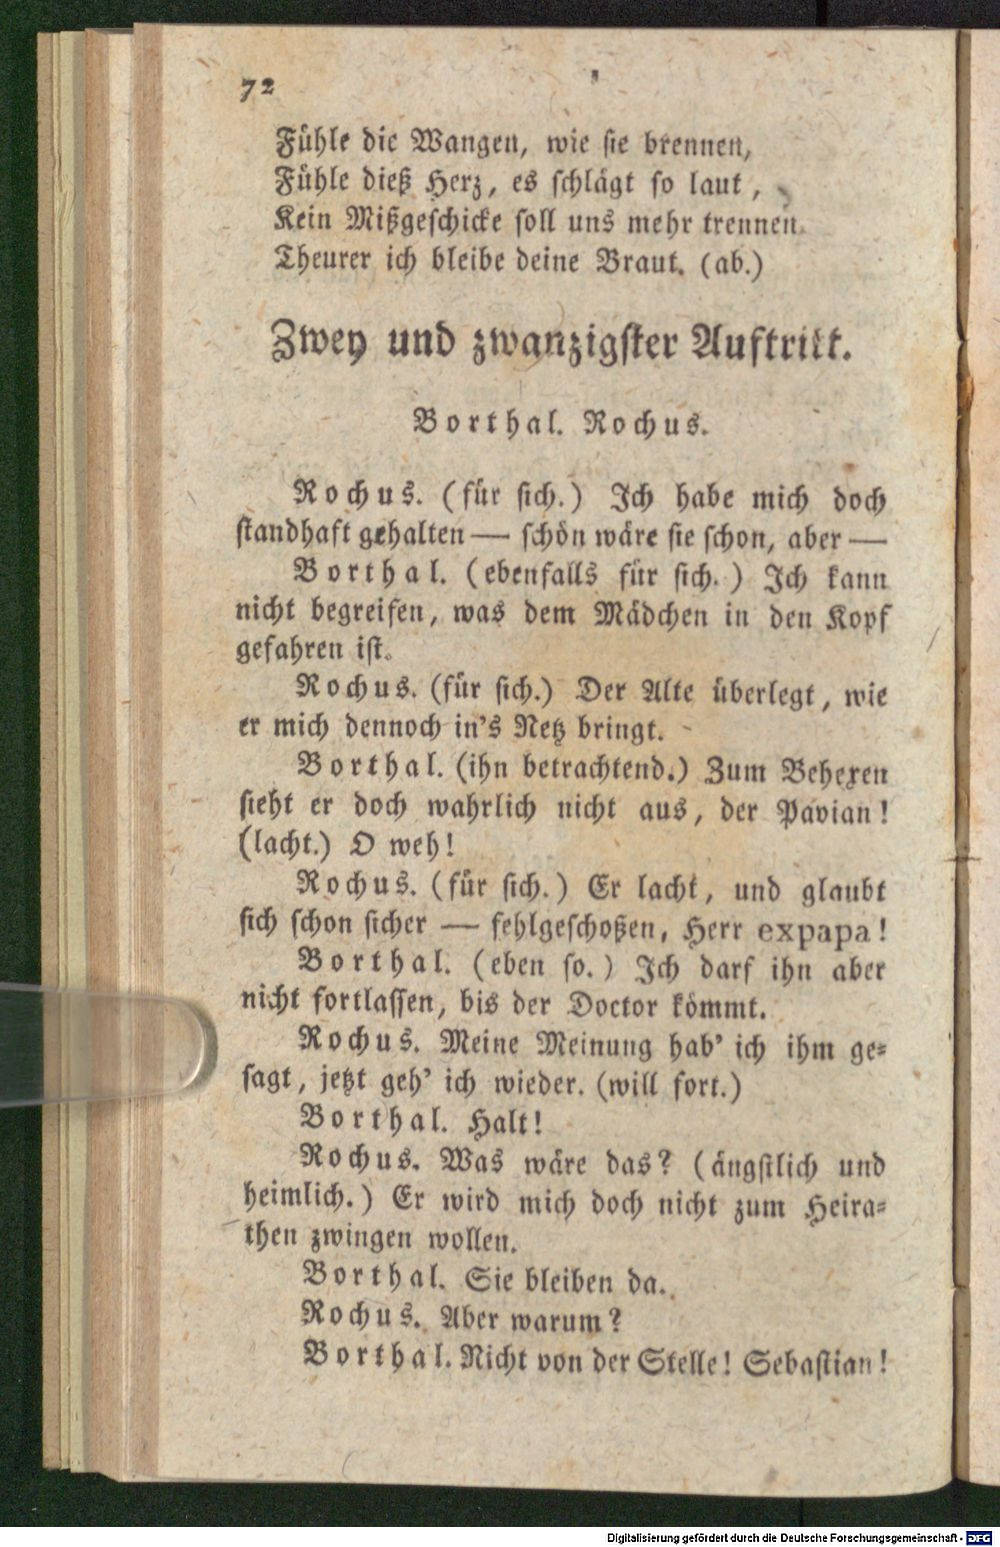 72
Fühle die Wangen, wie sie brennen,
Fühle dieß Herz, es schlägt so laut,
Kein Mißgeschicke soll uns mehr trennen
Theurer ich bleibe deine Braut. (ab.)
Zwey und zwanzigster Auftritt.
Borthal. Rochus.
Rochus. (für sich.) Ich habe mich doch
standhaft gehalten — schön wäre sie schon, aber —
Borthal. (ebenfalls für sich.) Ich kann
nicht begreifen, was dem Mädchen in den Kopf
gefahren ist.
Rochus. (für sich.) Der Alte überlegt, wie
er mich dennoch in's Netz bringt.
Borthal. (ihn betrachtend.) Zum Behexen
sieht er doch wahrlich nicht aus, der Pavian!
(lacht.) O weh!
Rochus. (für sich.) Er lacht, und glaubt
sich schon sicher — fehlgeschoßen, Herr expapa!
Borthal. (eben so.) Ich darf ihn aber
nicht fortlassen, bis der Doctor kömmt.
Rochus. Meine Meinung hab' ich ihm ge-
sagt, jetzt geh' ich wieder. (will fort.)
Borthal. Halt!
Rochus. Was wäre das? (ängstlich und
heimlich.) Er wird mich doch nicht zum Heira-
then zwingen wollen.
Borthal. Sie bleiben da.
Rochus. Aber warum?
Borthal. Nicht von der Stelle! Sebastian!
Digitalisierung gefördert durch die Deutsche Forschungsgemeinschaft - DFG